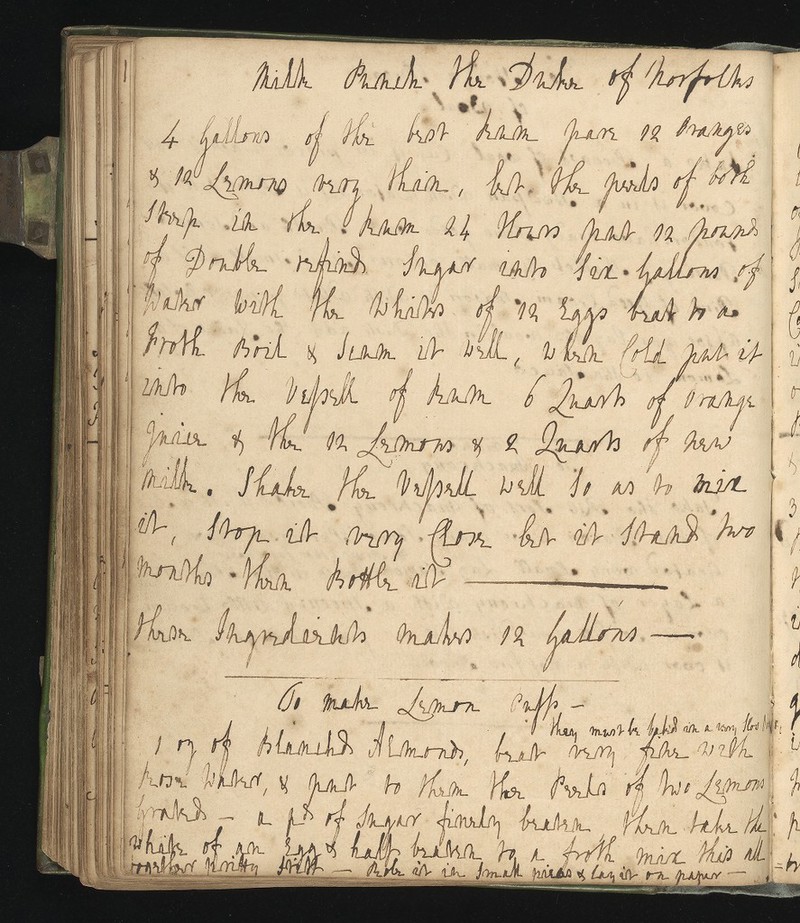 Milk Punch the Duke of Norfolks
4 Gallons of the best Rum pare 12 Oranges
& 12 Lemons very thin, let the peels of both
Steep in the Rum 24 Hours put 12 pounds
of Double refind Sugar into Six Gallons of
Water with the Whites of 12 Eggs beat to a
Froth Boil & Scum it well, when Cold put it
into the Vessell of Rum 6 Quarts of Orange
juice & the 12 Lemons & 2 Quarts of new
Milk. Shake the Vessell well So as to mix
it, Stop it very Close let it Stand two
months then Bottle it
these Ingredients makes 12 Gallons
To make Lemon Puffs
they must be baked in a very slow
1 oz of Blanchd Almonds, beat very fine with
Rose Water, & put to them the Peels of two Lemons
Grated a pd of Sugar finely beaten then take the
White of an Egg & half beaten to a froth mix this all
together pritty Stiff Role it in Small pieces & lay it on paper